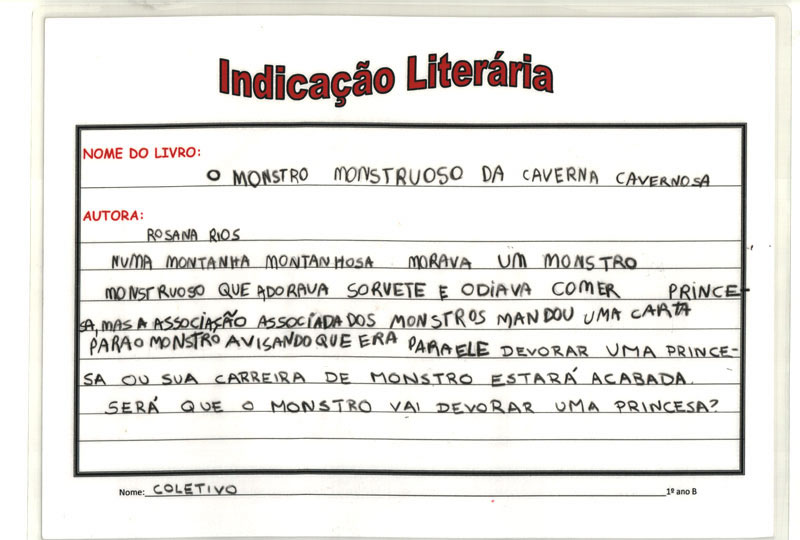 Indicação Literária
NOME DO LIVRO:
O MONSTRO MONSTRUOSO DA CAVERNA CAVERNOSA
AUTORA:
ROSANA RIOS
NUMA MONTANHA MONTANHOSA MORAVA UM MONSTRO
MONSTRUOSO QUE ADORAVA SORVETE E ODIAVA COMER PRINCE-
SA, MAS A ASSOCIAÇÃO ASSOCIADA DOS MONSTROS MANDOU UMA CARTA
PARA O MONSTRO AVISANDO QUE ERA PARA ELE DEVORAR UMA PRINCE-
SA OU SUA CARREIRA DE MONSTRO ESTARÁ ACABADA.
SERÁ QUE O MONSTRO VAI DEVORAR UMA PRINCESA?
Nome: COLETIVO 1º ano B